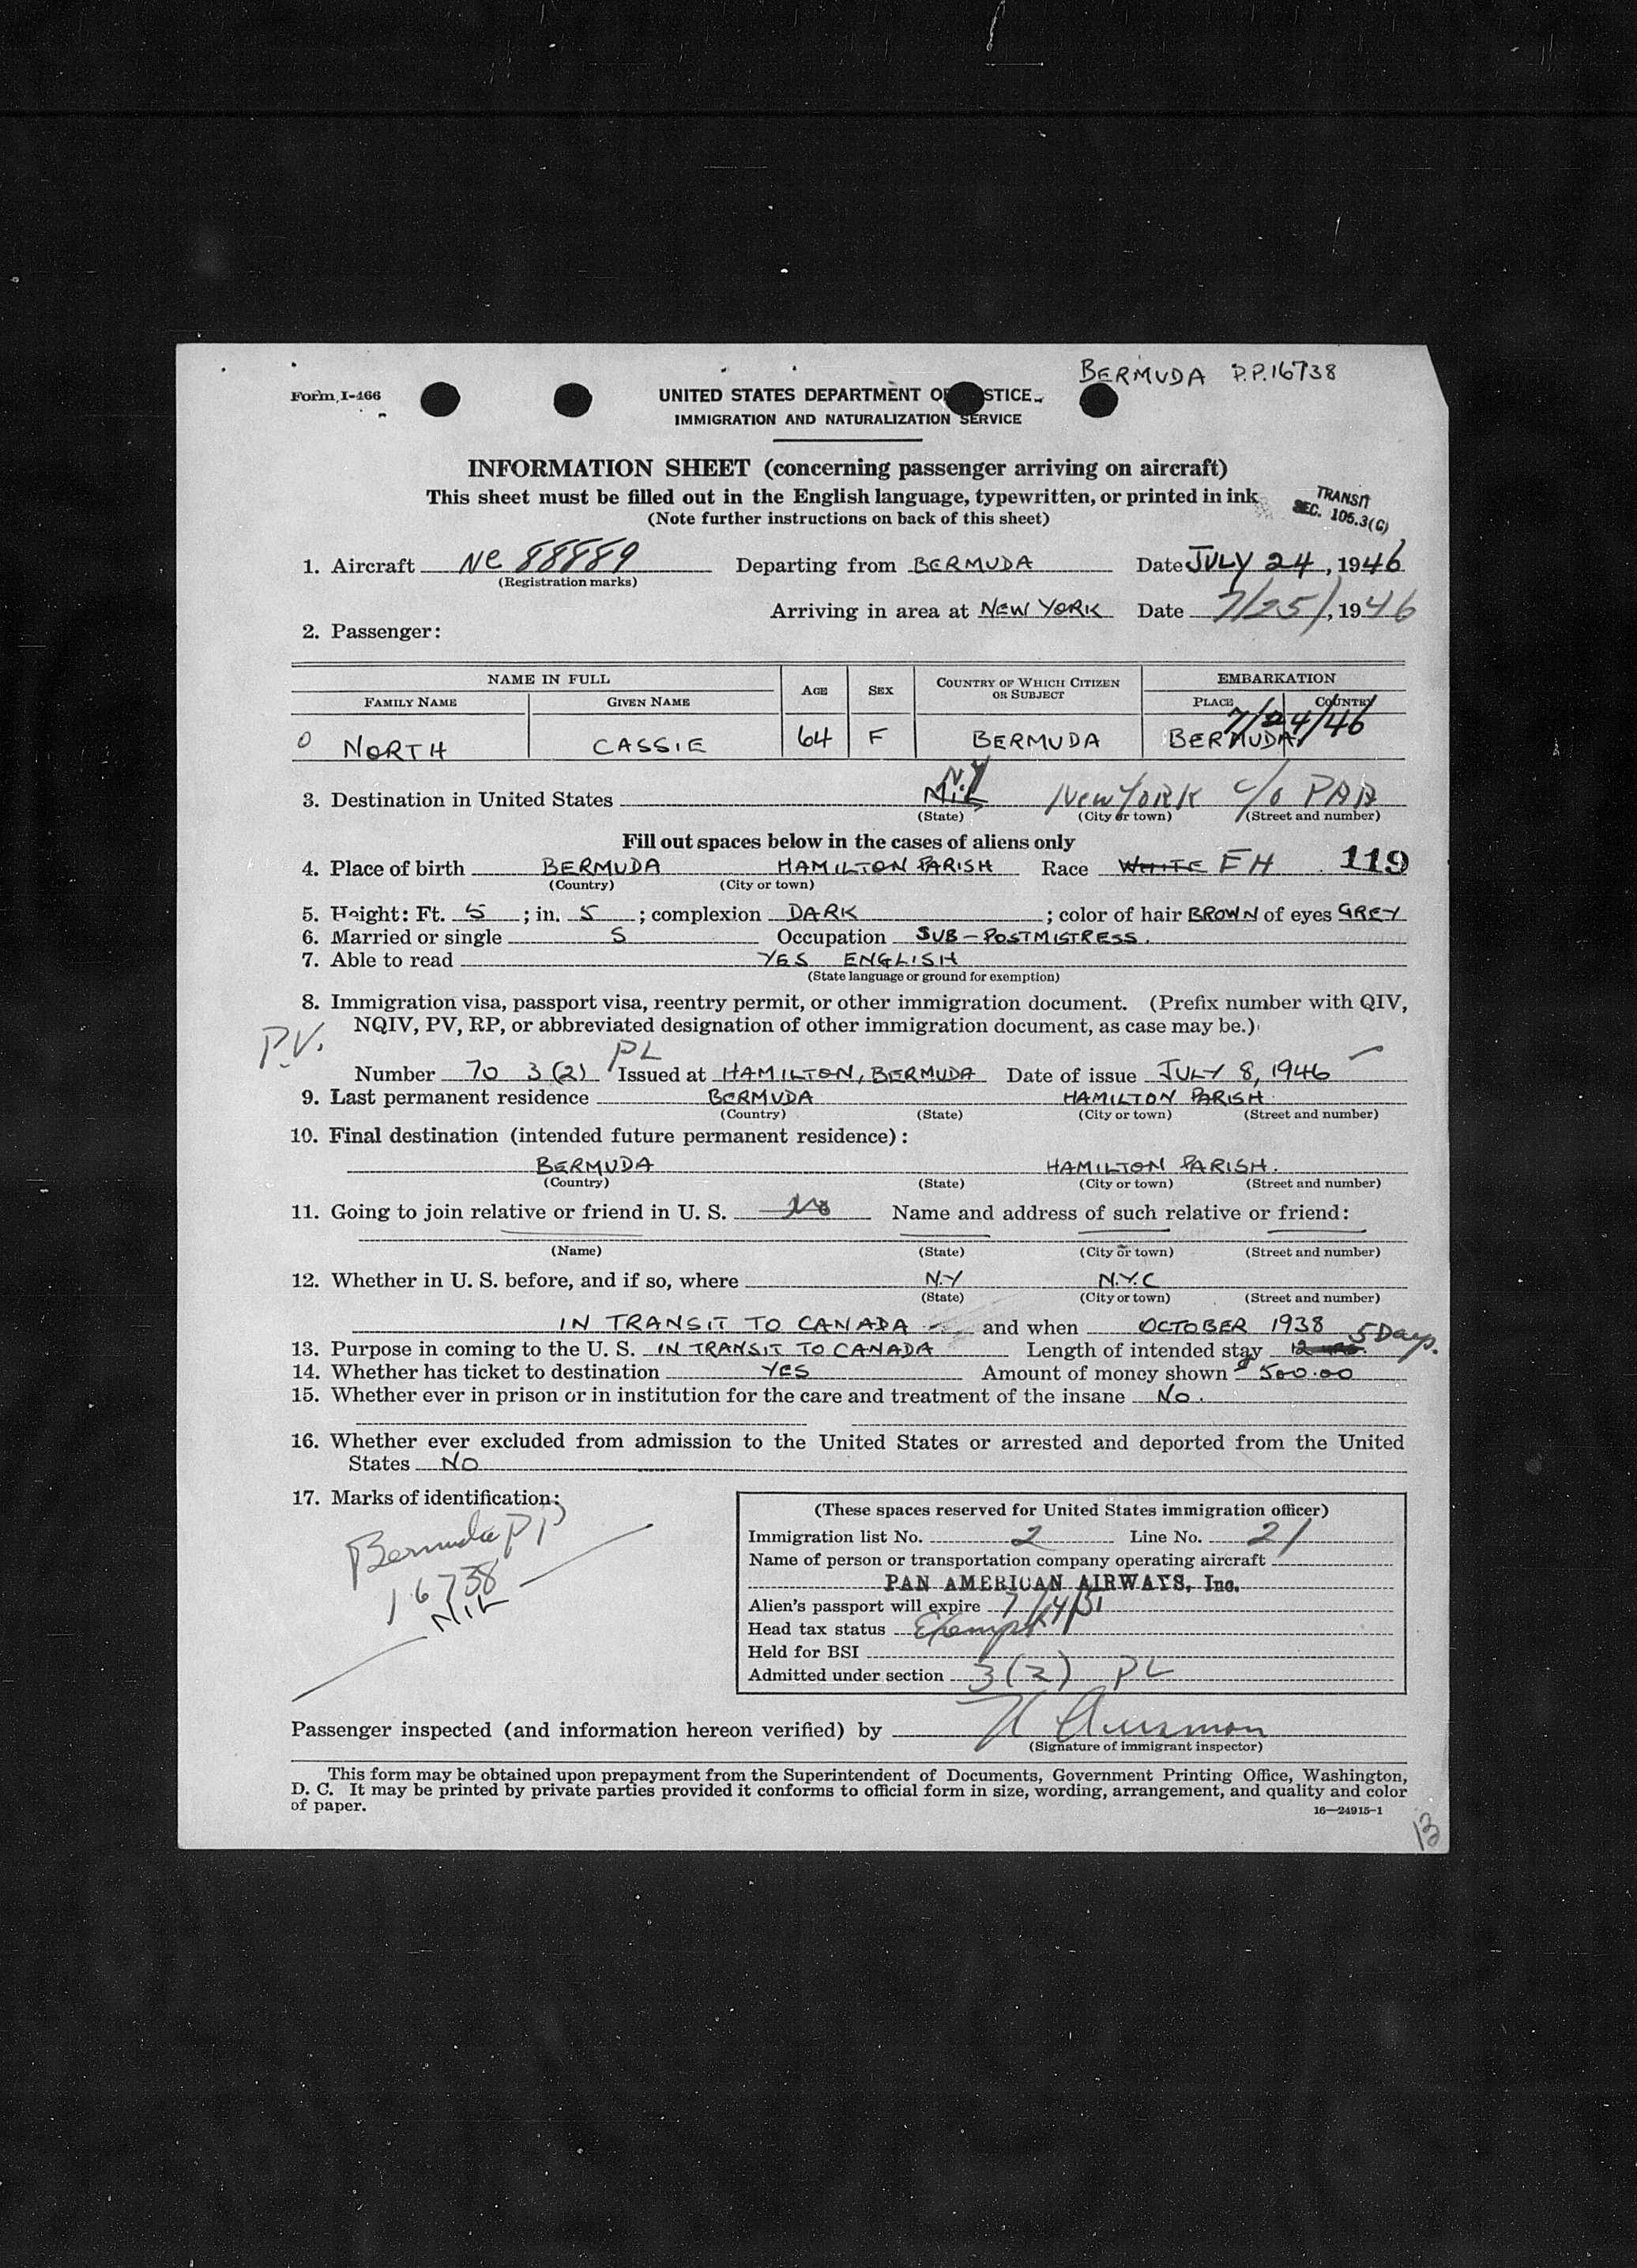 BERMUDA P.P.16738
Form I-466
UNITED STATES DEPARTMENT OF JUSTICE
IMMIGRATION AND NATURALIZATION SERVICE
INFORMATION SHEET (concerning passenger arriving on aircraft)
This sheet must be filled out in the English language, typewritten, or printed in ink
(Note further instructions on back of this sheet)
TRANSIT
SEC. 105.3(G)
1. Aircraft NC 88889 Departing from BERMUDA Date JULY 24, 1946
(Registration marks)
Arriving in area at NEW YORK Date 7/25/, 1946
2. Passenger:
NAME IN FULL AGE SEX COUNTRY OF WHICH CITIZEN OR SUBJECT EMBARKATION
FAMILY NAME GIVEN NAME PLACE COUNTRY
7/24/46
0 NORTH CASSIE 64 F BERMUDA BERMUDA
N.Y
3. Destination in United States NIL New YORK c/o PAA
(State) (City or town) (Street and number)
Fill out spaces below in the cases of aliens only
4. Place of birth BERMUDA HAMILTON PARISH Race WHITE EH 119
(Country) (City or town)
5. Height: Ft. 5 ; in. 5 ; complexion DARK ; color of hair BROWN of eyes GREY
6. Married or single S Occupation SUB-POSTMISTRESS.
7. Able to read YES ENGLISH
(State language or ground for exemption)
8. Immigration visa, passport visa, reentry permit, or other immigration document. (Prefix number with QIV,
NQIV, PV, RP, or abbreviated designation of other immigration document, as case may be.)
P.V.
PL
Number 70 3(2) Issued at HAMILTON, BERMUDA Date of issue JULY 8, 1946
9. Last permanent residence BERMUDA HAMILTON PARISH
(Country) (State) (City or town) (Street and number)
10. Final destination (intended future permanent residence):
BERMUDA HAMILTON PARISH.
(Country) (State) (City or town) (Street and number)
11. Going to join relative or friend in U. S. No Name and address of such relative or friend:
(Name) (State) (City or town) (Street and number)
12. Whether in U. S. before, and if so, where N.Y N.Y.C
(State) (City or town) (Street and number)
IN TRANSIT TO CANADA and when OCTOBER 1938
13. Purpose in coming to the U. S. IN TRANSIT TO CANADA Length of intended stay 12 5 Days.
14. Whether has ticket to destination YES Amount of money shown $ 500.00
15. Whether ever in prison or in institution for the care and treatment of the insane No.
16. Whether ever excluded from admission to the United States or arrested and deported from the United
States NO
17. Marks of identification:
Bermuda PP
16738
NIL
(These spaces reserved for United States immigration officer)
Immigration list No. 2 Line No. 21
Name of person or transportation company operating aircraft
PAN AMERICAN AIRWAYS, Inc.
Alien's passport will expire 7/14/51
Head tax status Exempt
Held for BSI
Admitted under section 3(2) PL
Passenger inspected (and information hereon verified) by
(Signature of immigrant inspector)
This form may be obtained upon prepayment from the Superintendent of Documents, Government Printing Office, Washington,
D. C. It may be printed by private parties provided it conforms to official form in size, wording, arrangement, and quality and color
of paper.
16—24915-1
13